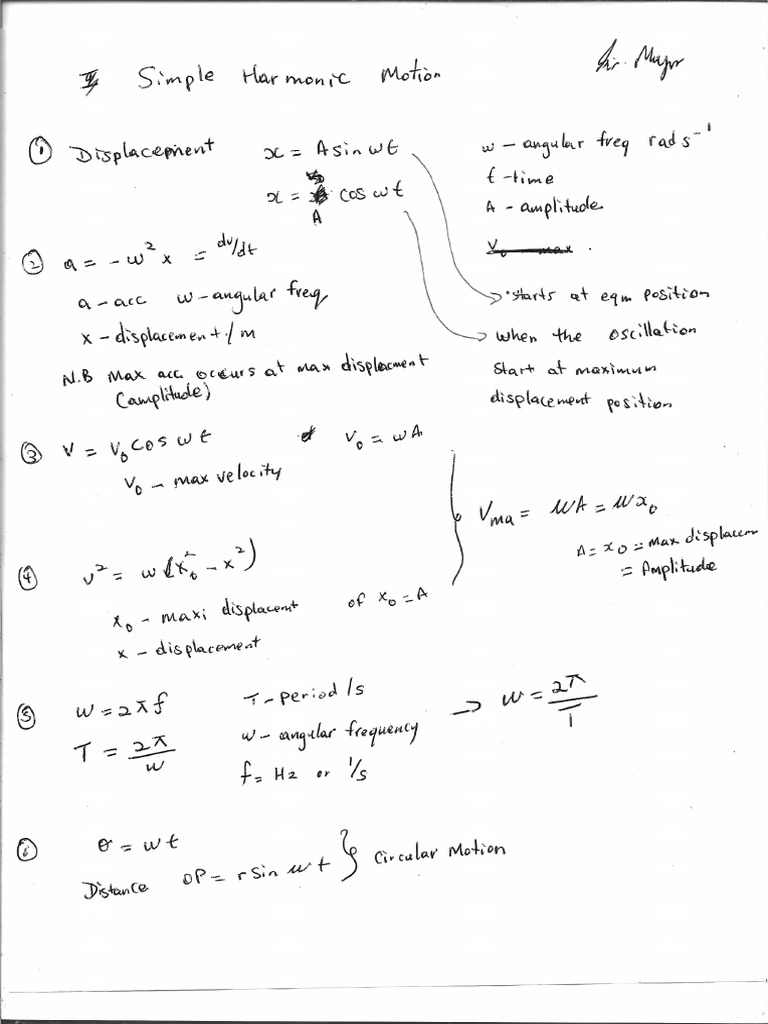 Simple Harmonic Motion
① Displacement x = A sin ωt
x = A cos ωt
ω – angular freq rad s⁻¹
t – time
A – amplitude
starts at eqm position
when the oscillation
start at maximum
displacement position
② a = -ω² x = dv/dt
a – acc ω – angular freq
x – displacement / m
N.B Max acc occurs at max displacment
(amplitude)
③ V = V₀ cos ωt V₀ = ωA
V₀ – max velocity
Vma = ωA = ωx₀
A = x₀ = Max displacem
= Amplitude
④ v² = ω(x₀² - x²)
x₀ – maxi displacent of x₀ = A
x – displacement
⑤ ω = 2πf T – period / s → ω = 2π/T
T = 2π/ω ω – angular frequency
f = Hz or 1/s
⑥ θ = ωt
Distance OP = r sin ωt } Circular Motion